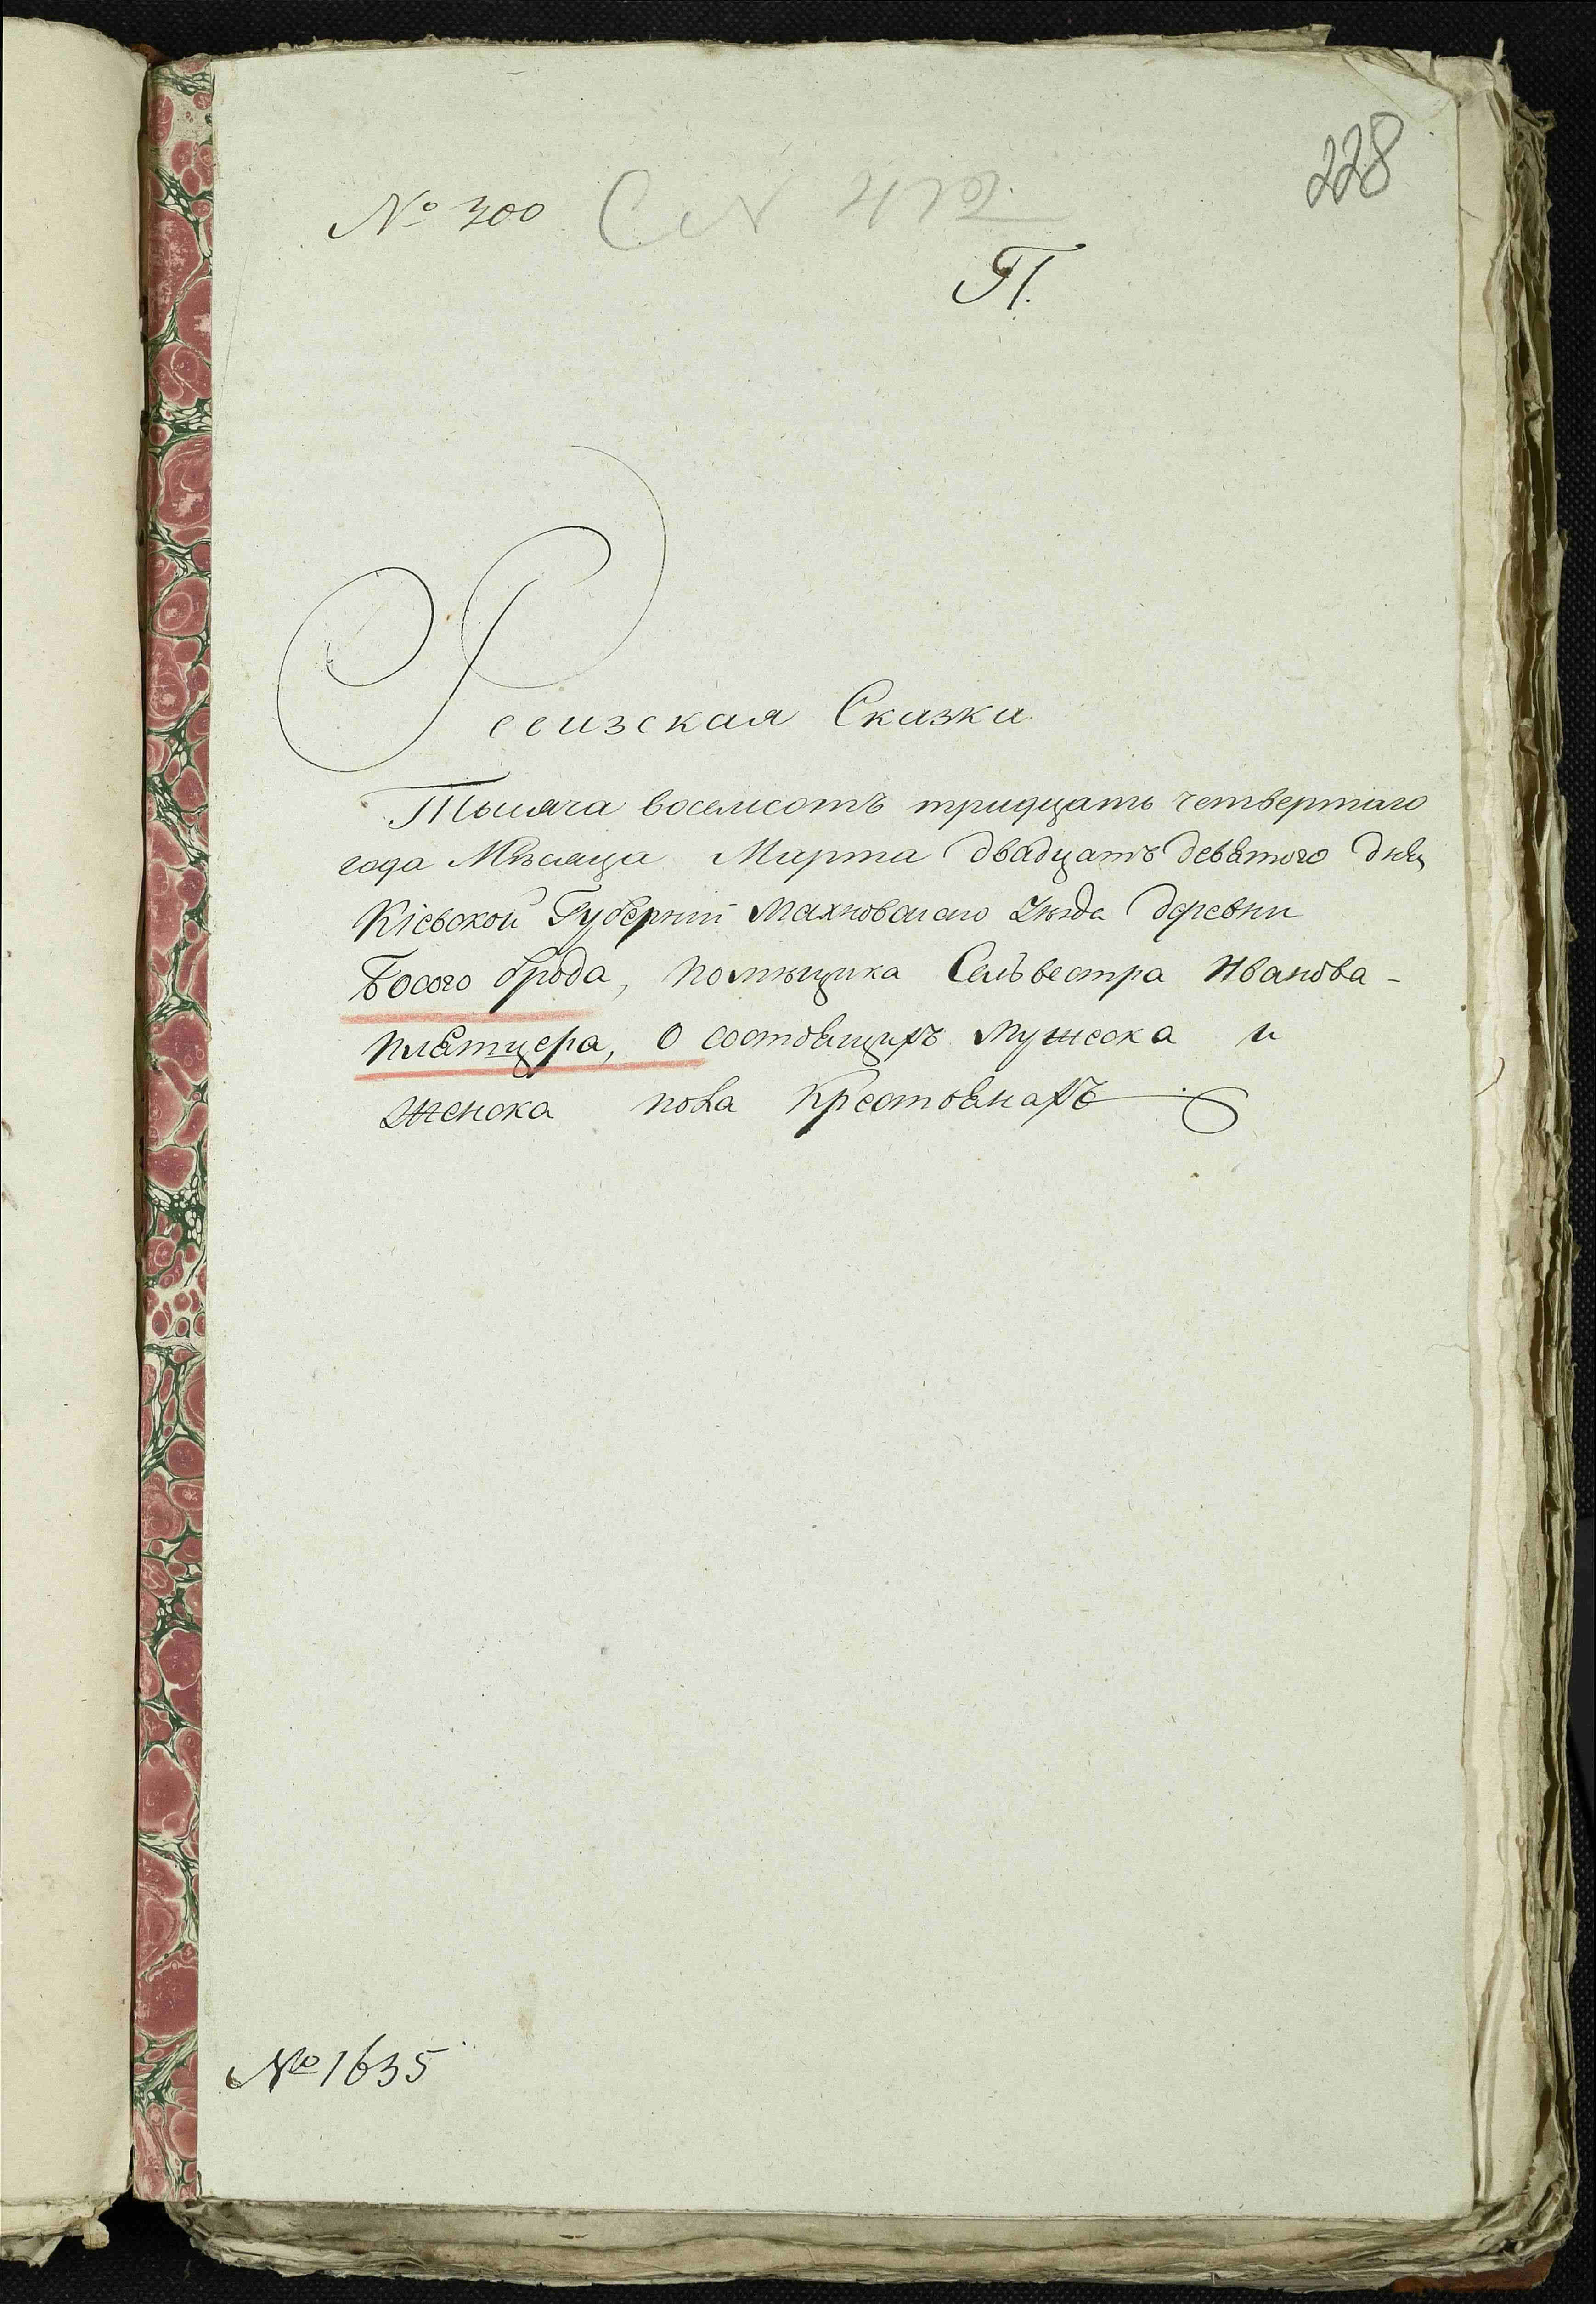 228
№ 300
П.
Ревизская Сказка
Тысяча восемсотъ тридцать четвертаго
года Мѣсяца Марта двадцать девятого дня
Кіевской Губерніи Махновского Уѣзда деревни
Босого брода, помѣщика Сельвестра Иванова-
Плятцера, О состоящихъ мужеска и
женска пола Крестьянахъ
№ 1635